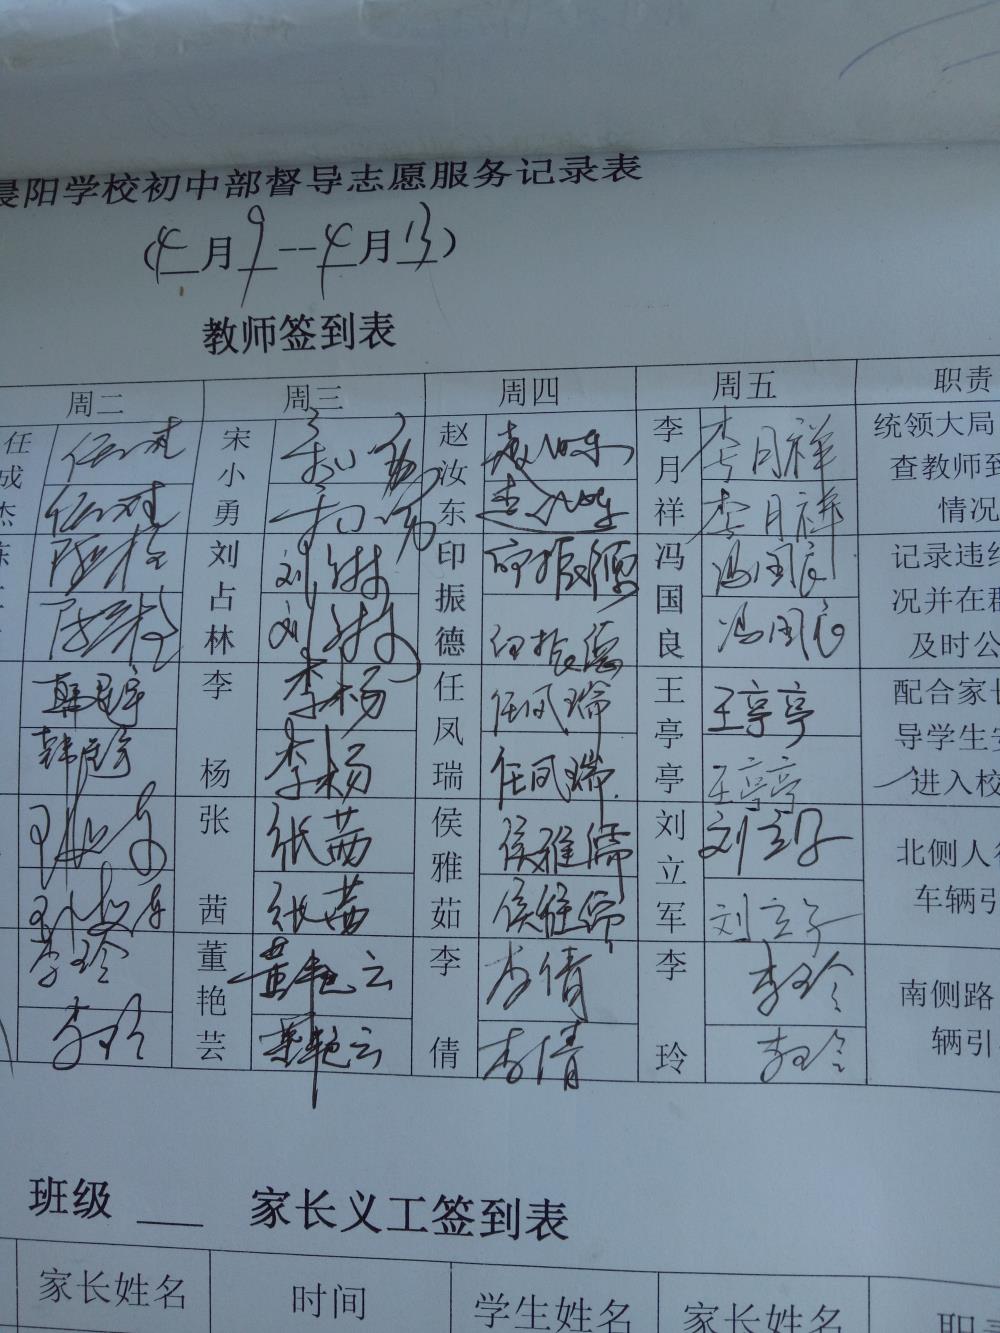 晨阳学校初中部督导志愿服务记录表
(4月9--4月13)
教师签到表
周二 周三 周四 周五 职责
任成杰 宋小勇 赵汝东 李月祥 李月祥 统领大局
查教师到
李月祥 情况
刘占林 印振德 印振德 冯国良 冯国良 记录违纪
况并在群
陈 印振德 冯国良 及时公
李杨 李杨 任凤瑞 任凤瑞 王亭亭 王亭亭 配合家长
导学生安
李杨 任凤瑞 王亭亭 进入校
张茜 张茜 侯雅茹 侯雅儒 刘立军 北侧人行
车辆引
张茜 侯雅儒
李玲 董艳芸 董艳云 李倩 李倩 李玲 李玲 南侧路
辆引
李玲 董艳云 李倩 李玲
班级 ___ 家长义工签到表
家长姓名 时间 学生姓名 家长姓名 职责